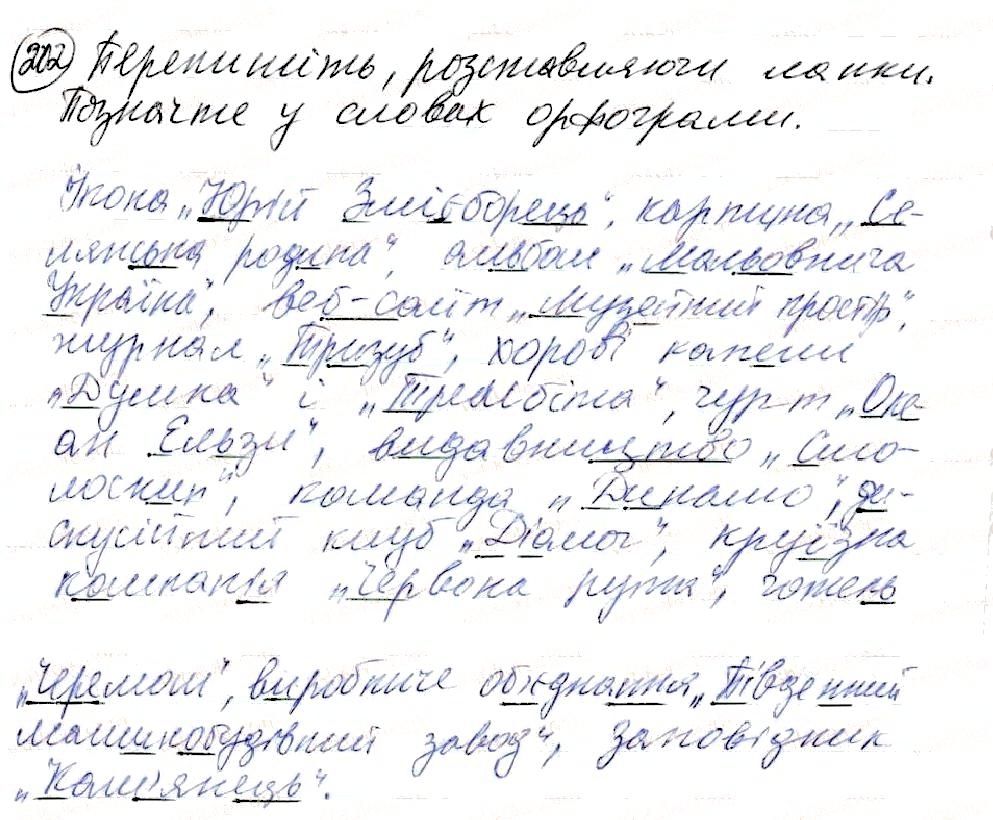 202 Перепишіть, розставляючи лапки.
Позначте у словах орфограми.
Ікона „Юрій Змієборець", картина „Се-
лянська родина", альбом „Мальовнича
Україна", веб-сайт „Музейний простір",
журнал „Тризуб", хорові капели
„Думка" і „Трембіта", гурт „Оке-
ан Ельзи", видавництво „Смо-
лоскип", команда „Динамо", ди-
скусійний клуб „Діалог", круїзна
компанія „Червона рута", готель
„Черемош", виробниче об'єднання „Південний
машинобудівний завод", заповідник
„Кам'янець".